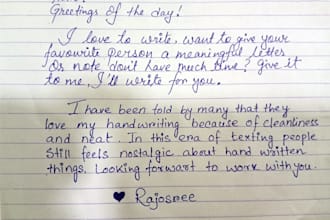 Greetings of the day!
I love to write, want to give your
favourite person a meaningful letter
Or note don't have much time? Give it
to me, I'll write for you.
I have been told by many that they
love my handwriting because of cleanliness
and neat. In this era of texting people
Still feels nostalgic about hand written
things. Looking forwart to work with you.
♥ Rajosree